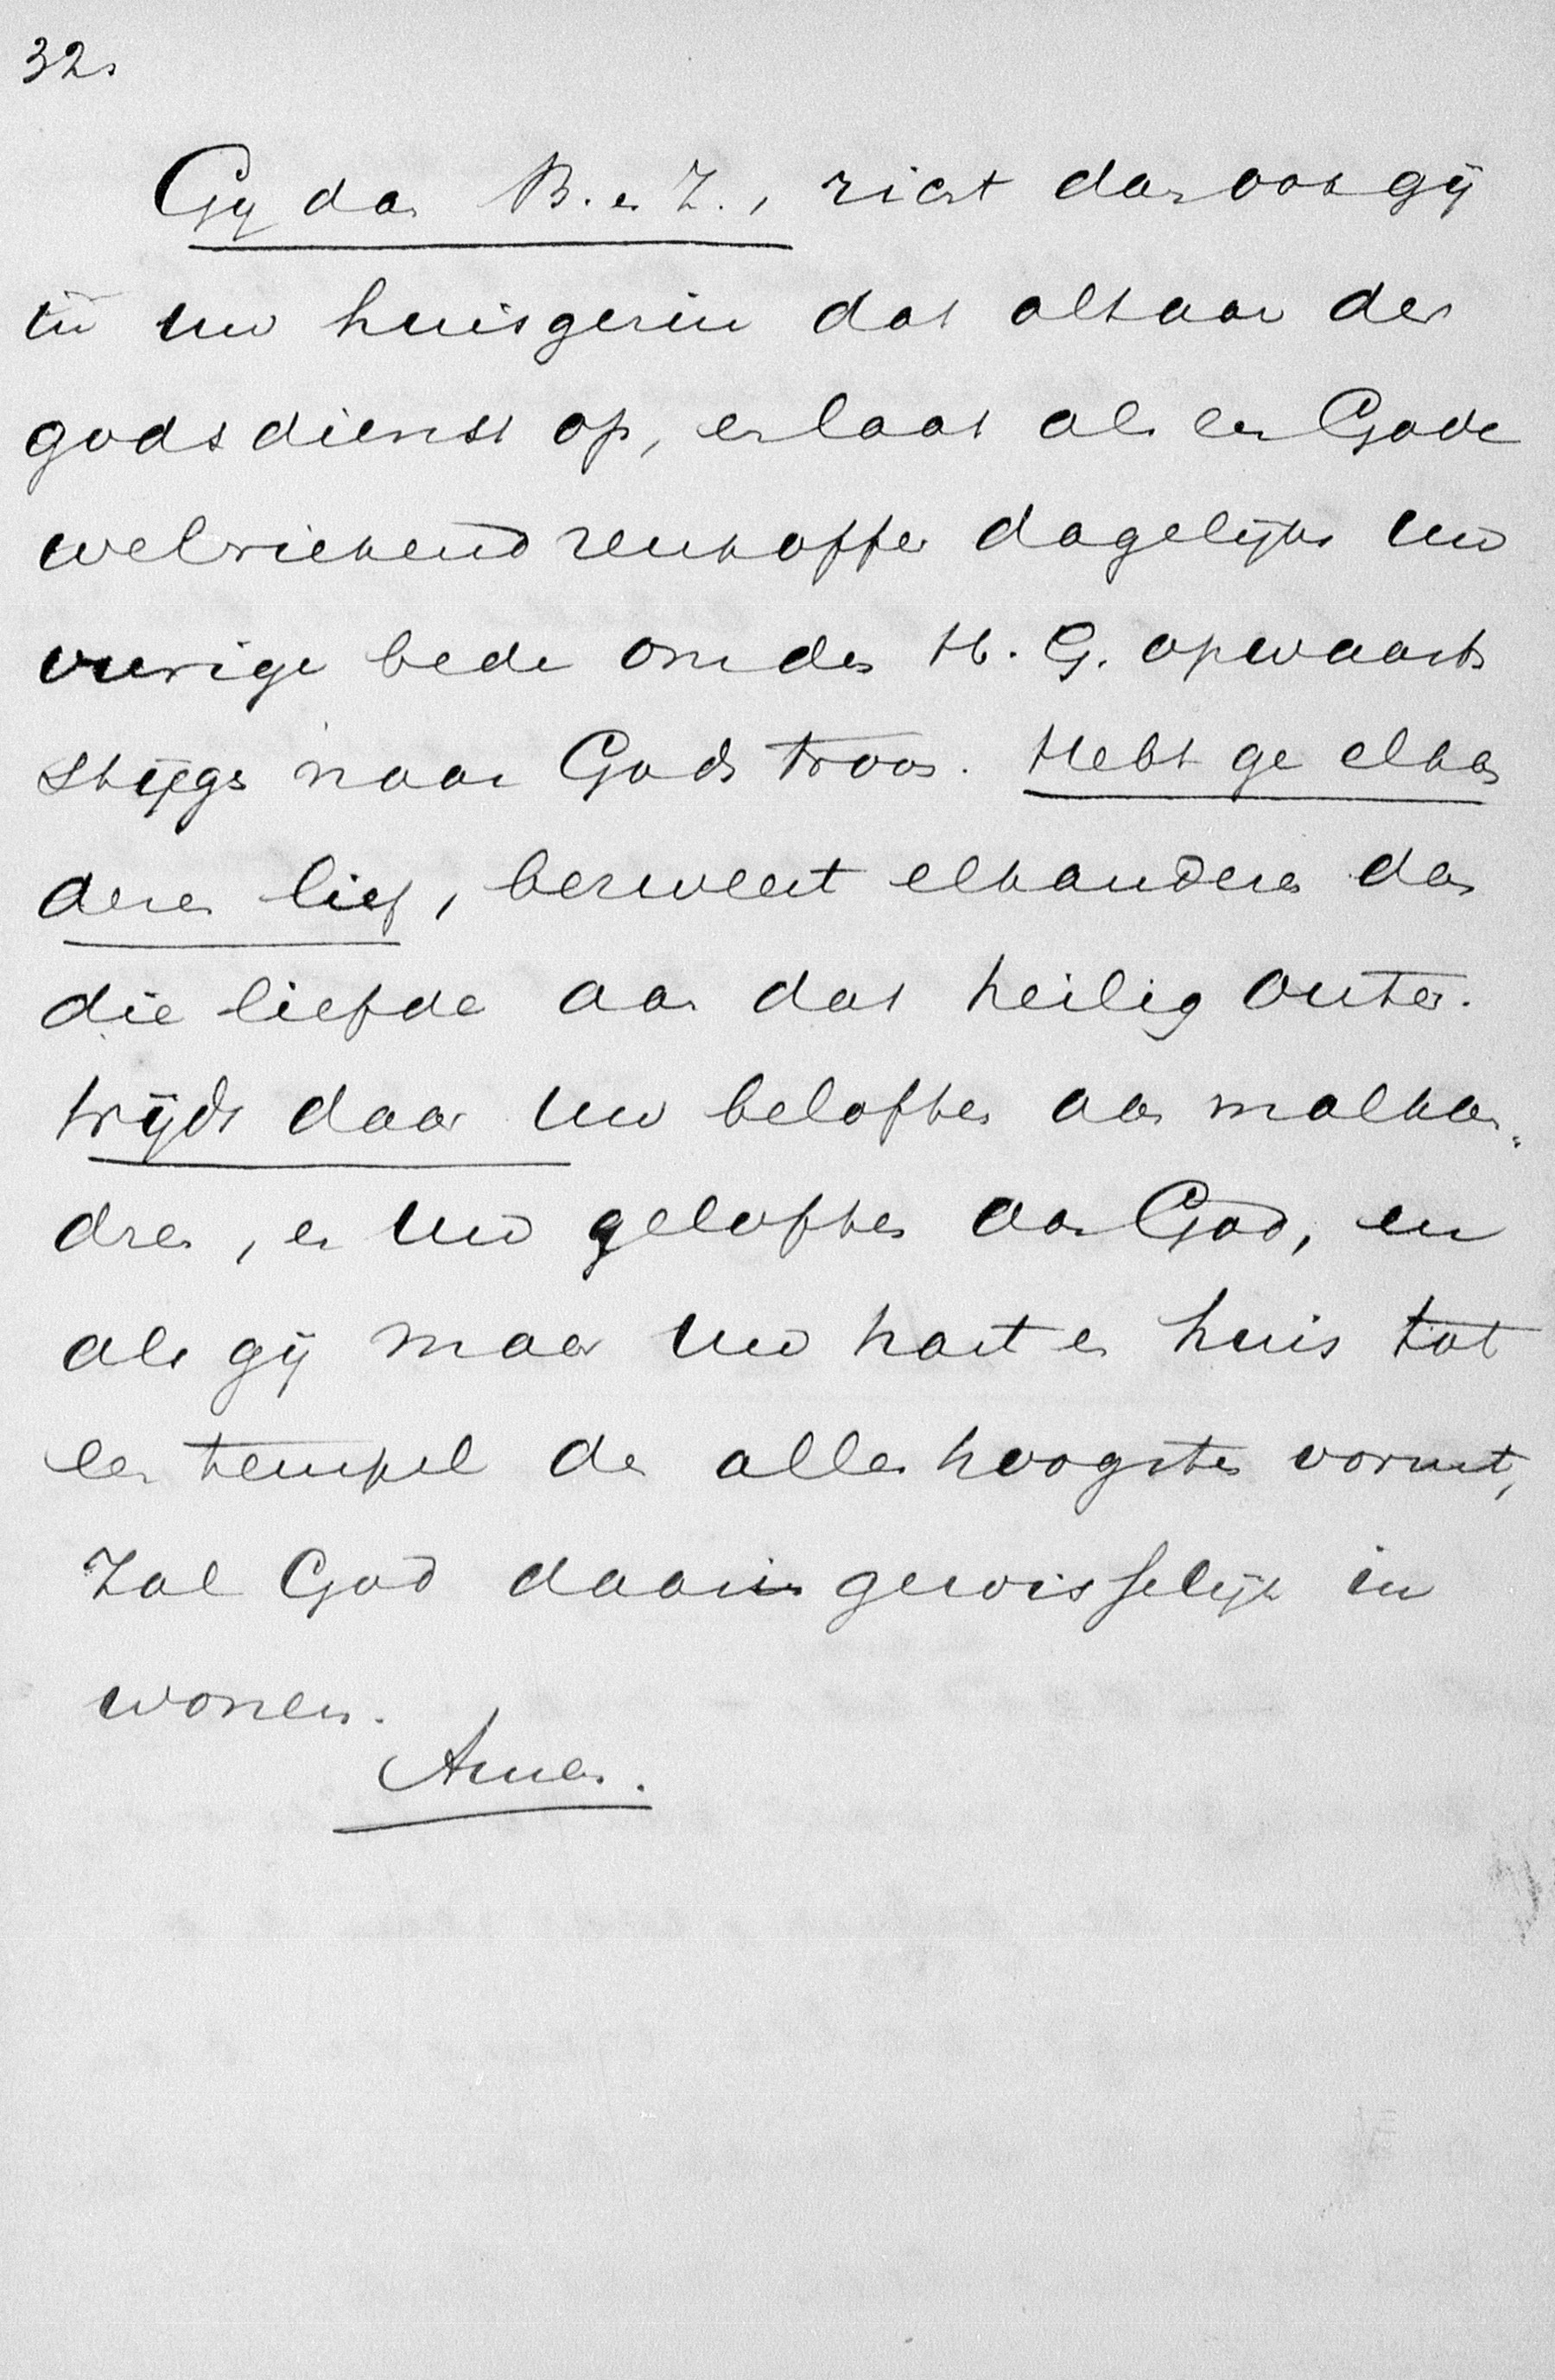 32.
Gij dan B. en Z., richt dan ook gij
in uw huisgezin dat altaar der
godsdienst op, en laat als een Gode
welriekend reukoffer dagelijks uw
vurige bede om den H. G. opwaarts
stijgen naar Gods troon. Hebt ge elkan
deren lief, bezweert elkanderen dan
die liefde aan dat heilig outer.
Wijdt daar uw beloften aan malkan-
dren, en uw geloften aan God, en
als gij maar uw hart en huis tot
een tempel des allerhoogsten vormt,
Zal God daarin gewisselijk in
wonen.
Amen.